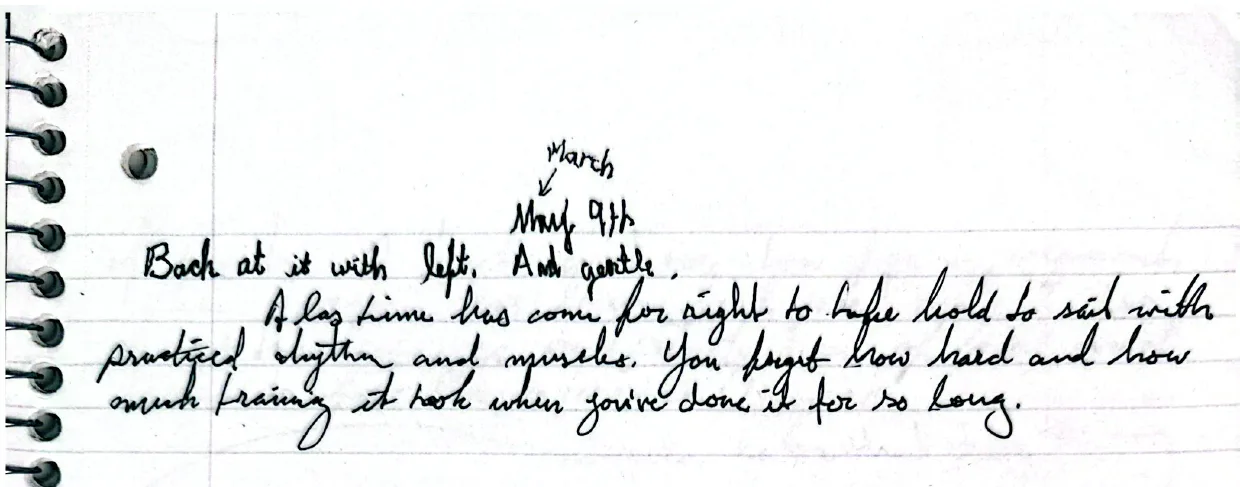 March
May 9th
Back at it with left. And gentle.
Alas time has come for right to take hold to sail with
practiced rhythm and muscles. You forget how hard and how
much training it took when you've done it for so long.